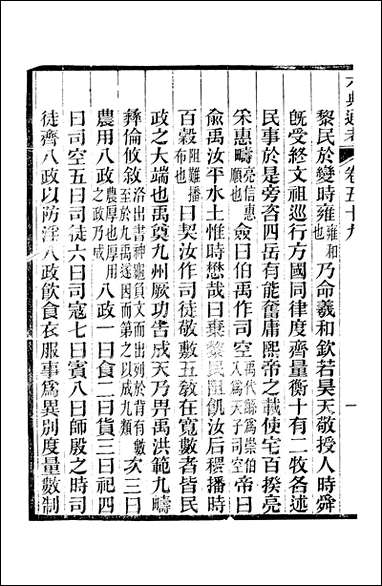 六典通考 卷五十九
黎民於變時雍雍和也乃命羲和欽若昊天敬授人時舜
既受終文祖巡行方國同律度齊量衡十有二牧各述
民事於是旁咨四岳有能奮庸熙帝之載使宅百揆亮
采惠疇亮信惠順也僉曰伯禹作司空禹代鯀為崇伯入為天子司空帝曰
俞禹汝平水土惟時懋哉曰棄黎民阻飢汝后稷播時
百穀阻難播布也曰契汝作司徒敬敷五敎在寬數者皆民
政之大端也禹奠九州厥功告成天乃畀禹洪範九疇
彝倫攸敘洛出書神龜負文而出列於背有數至於九禹遂因而第之以成九類次三曰
農用八政農厚也厚用之政乃成八政一曰食二曰貨三曰祀四
曰司空五曰司徒六曰司寇七曰賓八曰師殷之時司
徒齊八政以防淫八政飲食衣服事為異別度量數制